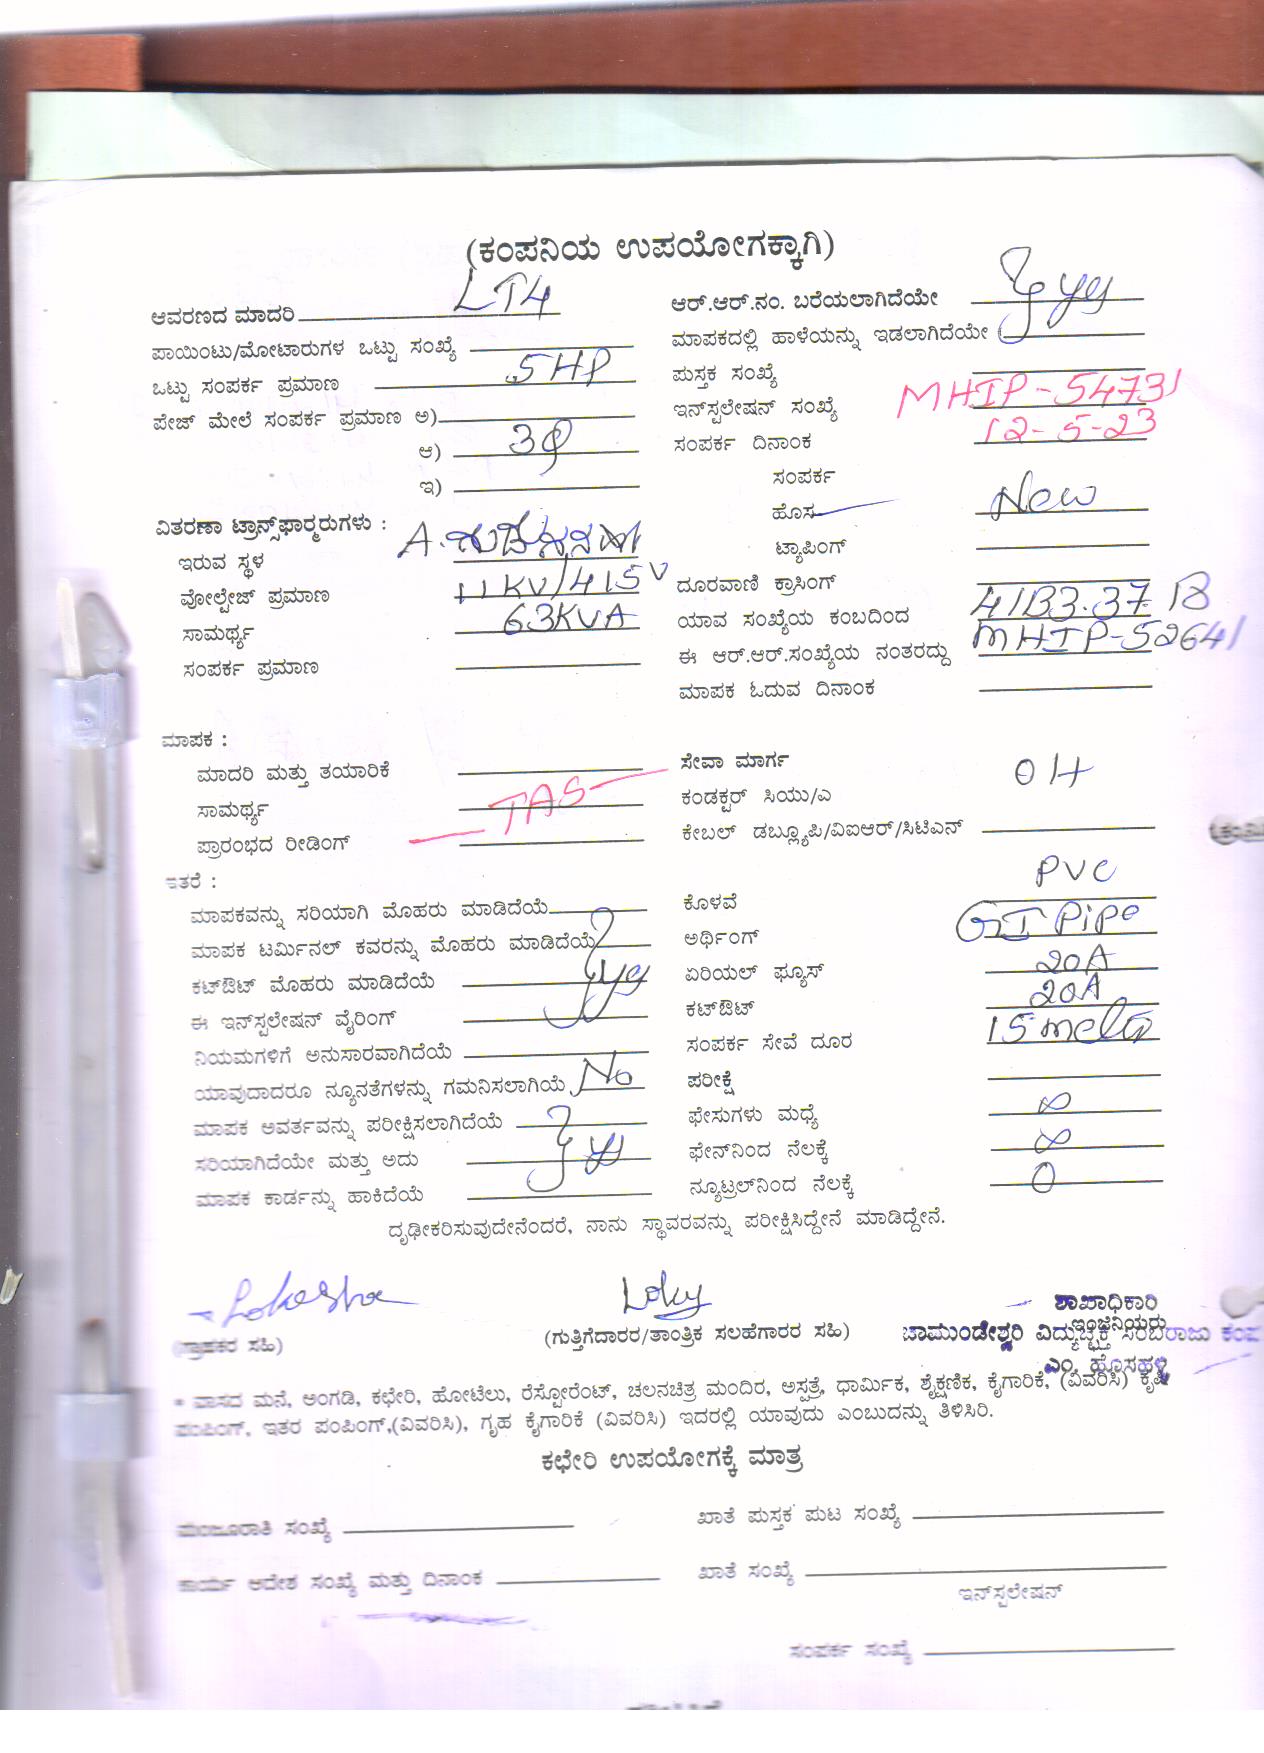 (ಕಂಪನಿಯ ಉಪಯೋಗಕ್ಕಾಗಿ)
ಆವರಣದ ಮಾದರಿ LT4
ಪಾಯಿಂಟು/ಮೋಟಾರುಗಳ ಒಟ್ಟು ಸಂಖ್ಯೆ
ಒಟ್ಟು ಸಂಪರ್ಕ ಪ್ರಮಾಣ 5HP
ಪೇಜ್ ಮೇಲೆ ಸಂಪರ್ಕ ಪ್ರಮಾಣ ಅ)
ಆ) 3φ
ಇ)
ವಿತರಣಾ ಟ್ರಾನ್ಸ್‌ಫಾರ್ಮರುಗಳು :
ಇರುವ ಸ್ಥಳ A.
ವೋಲ್ಟೇಜ್ ಪ್ರಮಾಣ 11KV/415V
ಸಾಮರ್ಥ್ಯ 63KVA
ಸಂಪರ್ಕ ಪ್ರಮಾಣ
ಆರ್.ಆರ್.ನಂ. ಬರೆಯಲಾಗಿದೆಯೇ yes
ಮಾಪಕದಲ್ಲಿ ಹಾಳೆಯನ್ನು ಇಡಲಾಗಿದೆಯೇ
ಪುಸ್ತಕ ಸಂಖ್ಯೆ
ಇನ್‌ಸ್ಟಲೇಷನ್ ಸಂಖ್ಯೆ MHIP-54731
ಸಂಪರ್ಕ ದಿನಾಂಕ 12-5-23
ಸಂಪರ್ಕ
ಹೊಸ New
ಟ್ಯಾಪಿಂಗ್
ದೂರವಾಣಿ ಕ್ರಾಸಿಂಗ್
ಯಾವ ಸಂಖ್ಯೆಯ ಕಂಬದಿಂದ
ಈ ಆರ್.ಆರ್.ಸಂಖ್ಯೆಯ ನಂತರದ್ದು MHIP-52641
ಮಾಪಕ ಓದುವ ದಿನಾಂಕ
ಮಾಪಕ :
ಮಾದರಿ ಮತ್ತು ತಯಾರಿಕೆ
ಸಾಮರ್ಥ್ಯ TAS
ಪ್ರಾರಂಭದ ರೀಡಿಂಗ್
ಸೇವಾ ಮಾರ್ಗ
ಕಂಡಕ್ಟರ್ ಸಿಯು/ಎ OH
ಕೇಬಲ್ ಡಬ್ಲ್ಯೂಪಿ/ವಿಐಆರ್/ಸಿಟಿಎಸ್
ಇತರೆ :
ಮಾಪಕವನ್ನು ಸರಿಯಾಗಿ ಮೊಹರು ಮಾಡಿದೆಯೆ
ಮಾಪಕ ಟರ್ಮಿನಲ್ ಕವರನ್ನು ಮೊಹರು ಮಾಡಿದೆಯೆ
ಕಟ್‌ಔಟ್ ಮೊಹರು ಮಾಡಿದೆಯೆ yes
ಈ ಇನ್‌ಸ್ಟಲೇಷನ್ ವೈರಿಂಗ್
ನಿಯಮಗಳಿಗೆ ಅನುಸಾರವಾಗಿದೆಯೆ
ಯಾವುದಾದರೂ ನ್ಯೂನತೆಗಳನ್ನು ಗಮನಿಸಲಾಗಿಯೆ No
ಮಾಪಕ ಅವರ್ತವನ್ನು ಪರೀಕ್ಷಿಸಲಾಗಿದೆಯೆ
ಸರಿಯಾಗಿದೆಯೇ ಮತ್ತು ಅದು yes
ಮಾಪಕ ಕಾರ್ಡನ್ನು ಹಾಕಿದೆಯೆ
ಕೊಳವೆ PVC
ಅರ್ಥಿಂಗ್ GI Pipe
ಏರಿಯಲ್ ಫ್ಯೂಸ್ 20A
ಕಟ್‌ಔಟ್ 20A
ಸಂಪರ್ಕ ಸೇವೆ ದೂರ 15 meter
ಪರೀಕ್ಷೆ
ಫೇಸುಗಳು ಮಧ್ಯೆ ∞
ಫೇಸ್‌ನಿಂದ ನೆಲಕ್ಕೆ ∞
ನ್ಯೂಟ್ರಲ್‌ನಿಂದ ನೆಲಕ್ಕೆ 0
ದೃಢೀಕರಿಸುವುದೇನೆಂದರೆ, ನಾನು ಸ್ಥಾವರವನ್ನು ಪರೀಕ್ಷಿಸಿದ್ದೇನೆ ಮಾಡಿದ್ದೇನೆ.
Lokesha
(ಗ್ರಾಹಕರ ಸಹಿ)
(ಗುತ್ತಿಗೆದಾರರ/ತಾಂತ್ರಿಕ ಸಲಹೆಗಾರರ ಸಹಿ)
ಶಾಖಾಧಿಕಾರಿ
ಇಂಜಿನಿಯರು
ಚಾಮುಂಡೇಶ್ವರಿ ವಿದ್ಯುಚ್ಛಕ್ತಿ ಸರಬರಾಜು ಕಂಪ
ಎಂ. ಹೊಸಹಳ್ಳಿ
* ವಾಸದ ಮನೆ, ಅಂಗಡಿ, ಕಛೇರಿ, ಹೋಟೆಲು, ರೆಸ್ಟೋರೆಂಟ್, ಚಲನಚಿತ್ರ ಮಂದಿರ, ಅಸ್ಪತ್ರೆ, ಧಾರ್ಮಿಕ, ಶೈಕ್ಷಣಿಕ, ಕೈಗಾರಿಕೆ, (ವಿವರಿಸಿ) ಕೃಷಿ
ಪಂಪಿಂಗ್, ಇತರ ಪಂಪಿಂಗ್,(ವಿವರಿಸಿ), ಗೃಹ ಕೈಗಾರಿಕೆ (ವಿವರಿಸಿ) ಇದರಲ್ಲಿ ಯಾವುದು ಎಂಬುದನ್ನು ತಿಳಿಸಿರಿ.
ಕಛೇರಿ ಉಪಯೋಗಕ್ಕೆ ಮಾತ್ರ
ಮಂಜೂರಾತಿ ಸಂಖ್ಯೆ
ಖಾತೆ ಪುಸ್ತಕ ಪುಟ ಸಂಖ್ಯೆ
ಕಾರ್ಯ ಆದೇಶ ಸಂಖ್ಯೆ ಮತ್ತು ದಿನಾಂಕ
ಖಾತೆ ಸಂಖ್ಯೆ
ಇನ್‌ಸ್ಟಲೇಷನ್
ಸಂಪರ್ಕ ಸಂಖ್ಯೆ